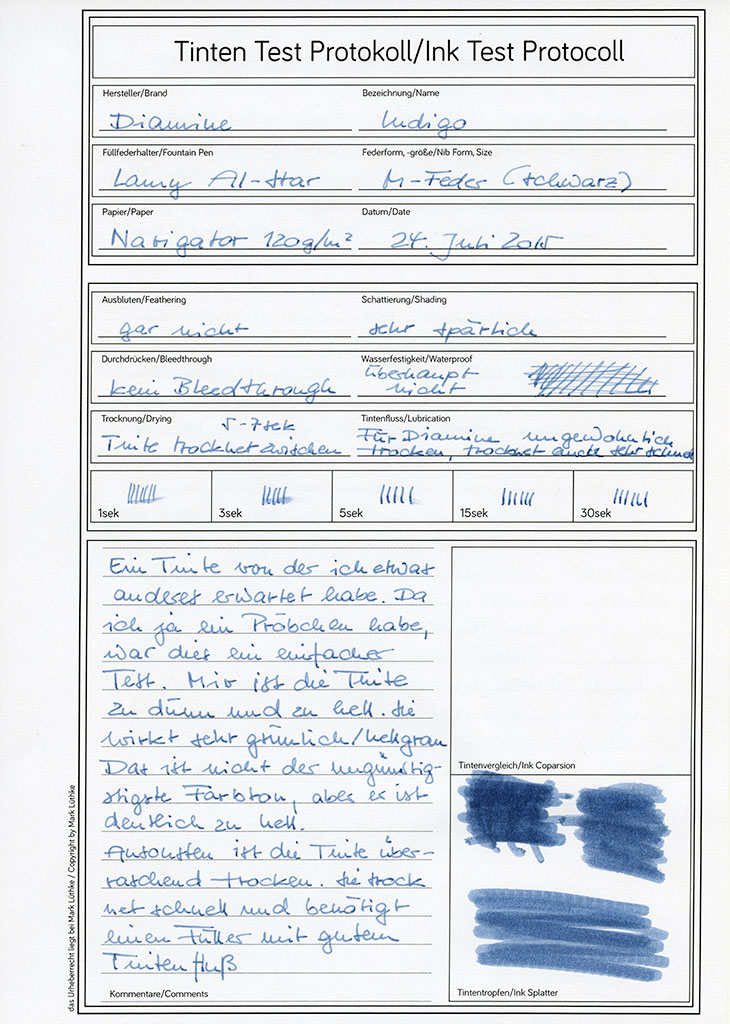 Tinten Test Protokoll/Ink Test Protocoll
Hersteller/Brand
Diamine
Bezeichnung/Name
Indigo
Füllfederhalter/Fountain Pen
Lamy Al-Star
Federform, -größe/Nib Form, Size
M-Feder (schwarz)
Papier/Paper
Navigator 120g/m²
Datum/Date
24. Juli 2015
Ausbluten/Feathering
gar nicht
Schattierung/Shading
sehr spärlich
Durchdrücken/Bleedthrough
kein Bleedthrough
Wasserfestigkeit/Waterproof
überhaupt
nicht
Trocknung/Drying
5-7sek
Tinte trocknet zwischen
Tintenfluss/Lubrication
Für Diamine ungewöhnlich
trocken, trocknet auch sehr schnell
1sek
3sek
5sek
15sek
30sek
Ein Tinte von der ich etwas
anderes erwartet habe. Da
ich ja ein Pröbchen habe,
war dies ein einfacher
Test. Mir ist die Tinte
zu dünn und zu hell. Sie
wirkt sehr grünlich/hellgrau
Das ist nicht der ungünstig-
stigste Farbton, aber es ist
deutlich zu hell.
Ansonsten ist die Tinte über-
raschend trocken. Sie trock
net schnell und benötigt
einen Füller mit gutem
Tintenfluß
Kommentare/Comments
Tintenvergleich/Ink Coparsion
Tintentropfen/Ink Splatter
das Urheberrecht liegt bei Mark Lüthke / Copyright by Mark Lüthke